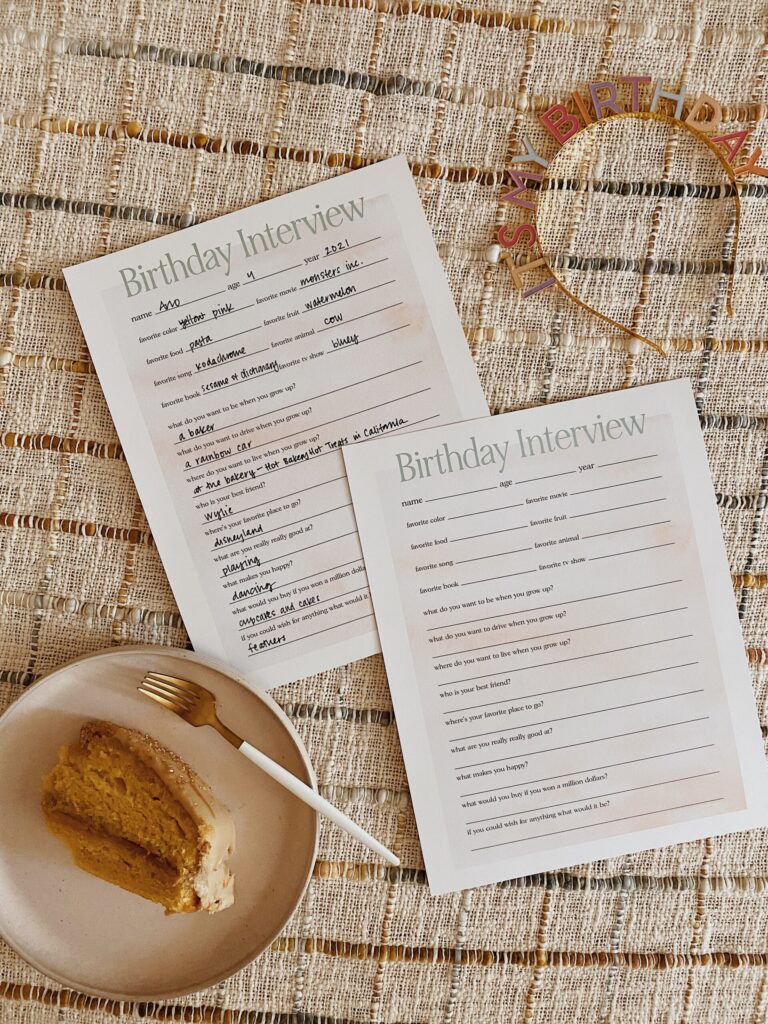 IT'S MY BIRTHDAY
Birthday Interview
name Arlo age 4 year 2021
favorite color yellow pink favorite movie monsters inc.
favorite food pasta favorite fruit watermelon
favorite song kodachrome favorite animal cow
favorite book sesame st dictionary favorite tv show bluey
what do you want to be when you grow up?
a baker
what do you want to drive when you grow up?
a rainbow car
where do you want to live when you grow up?
at the bakery - Hot Bakery Hot Treats in California
who is your best friend?
wylie
where's your favorite place to go?
disneyland
what are you really really good at?
playing
what makes you happy?
dancing
what would you buy if you won a million dollars
cupcakes and cakes
if you could wish for anything what would it
feathers
Birthday Interview
name age year
favorite color favorite movie
favorite food favorite fruit
favorite song favorite animal
favorite book favorite tv show
what do you want to be when you grow up?
what do you want to drive when you grow up?
where do you want to live when you grow up?
who is your best friend?
where's your favorite place to go?
what are you really really good at?
what makes you happy?
what would you buy if you won a million dollars?
if you could wish for anything what would it be?